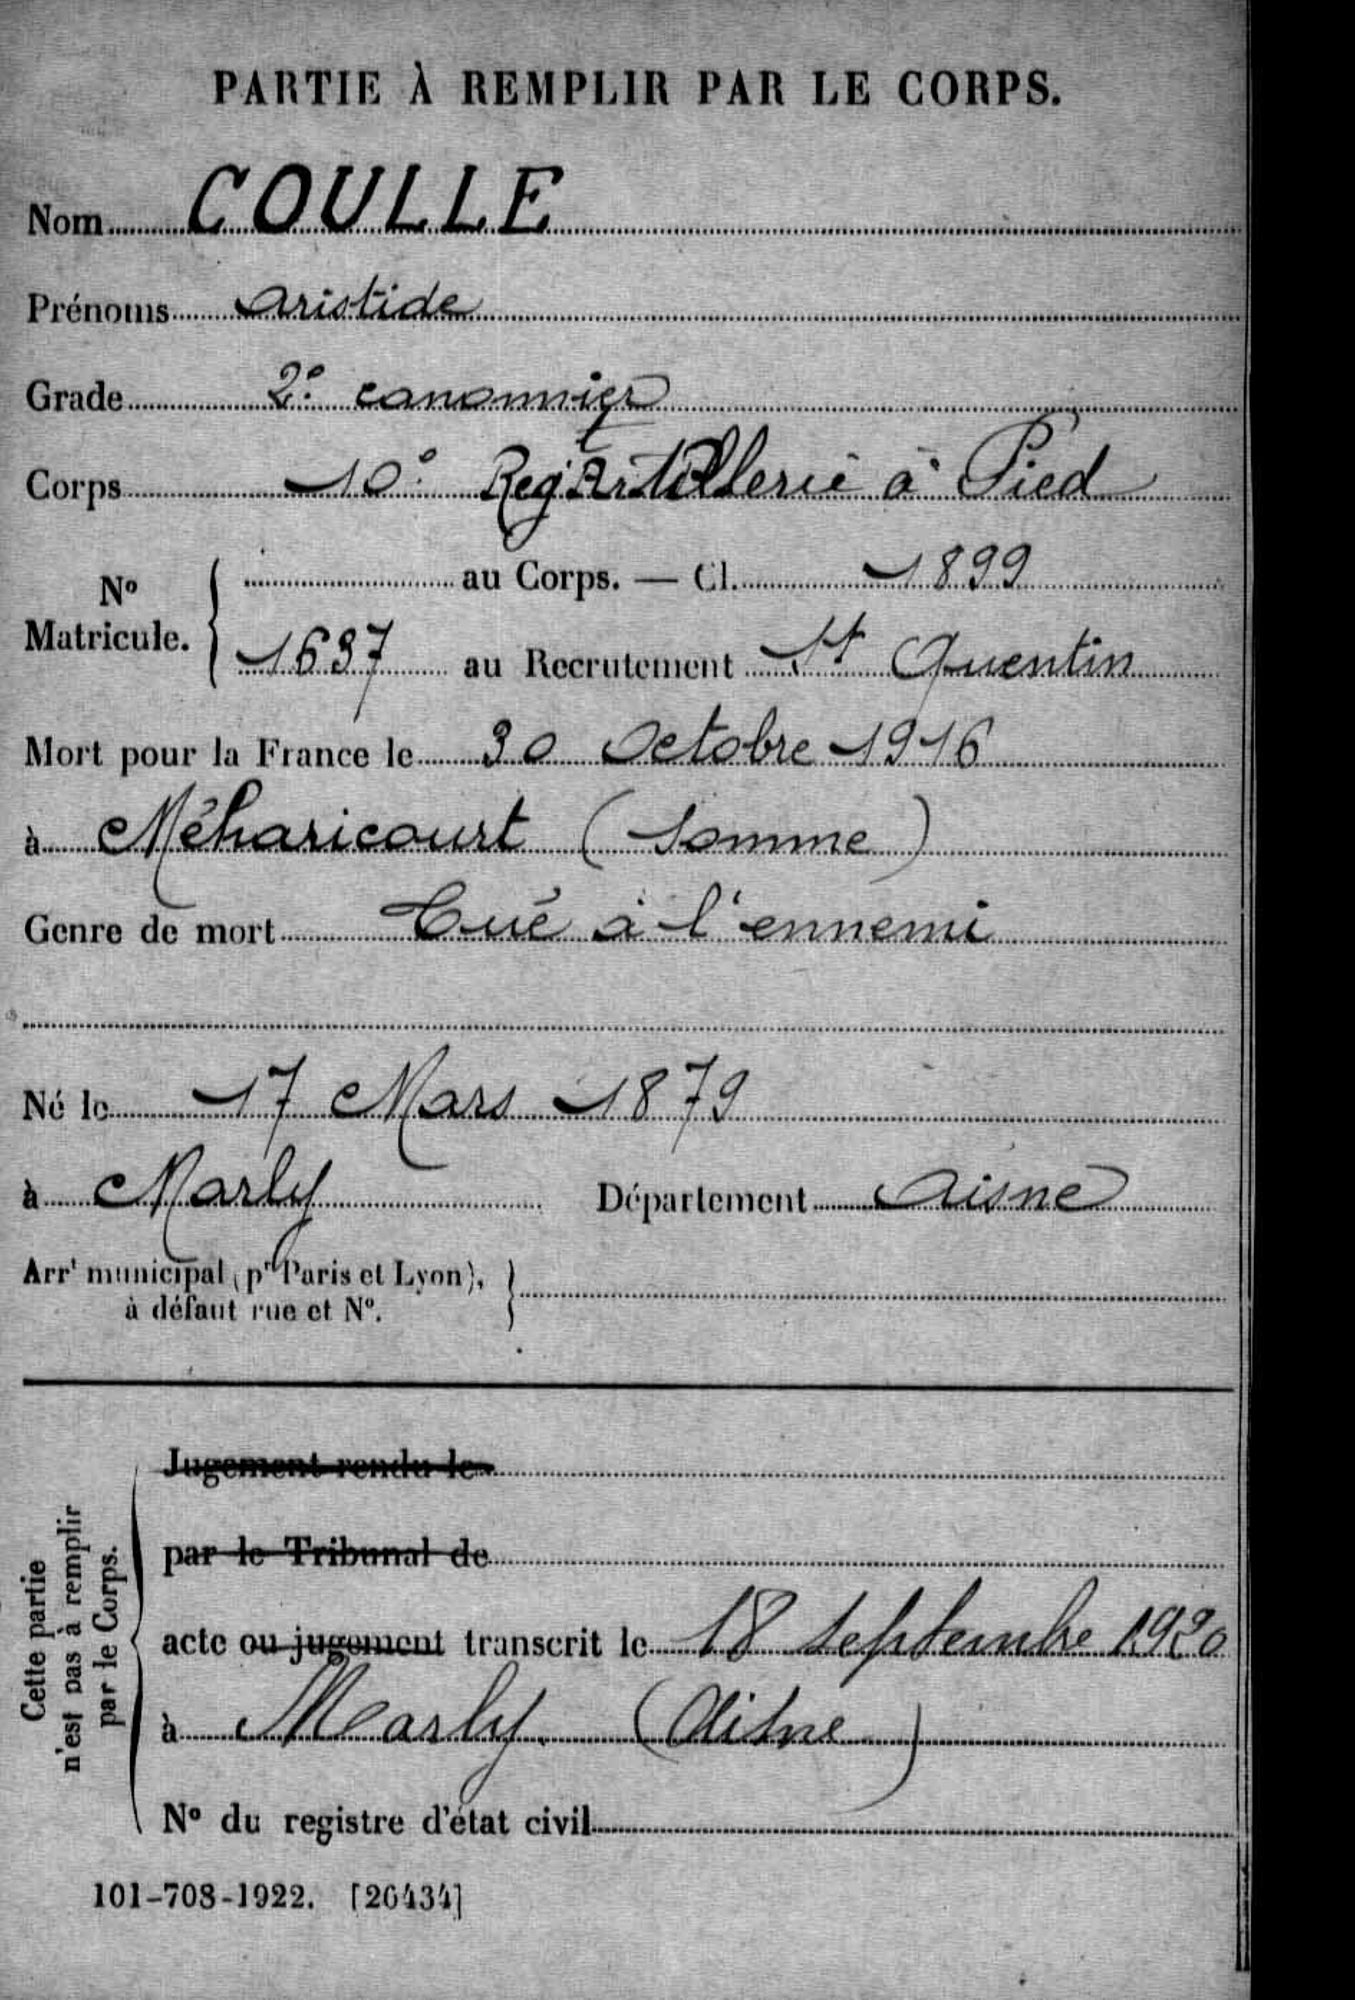 PARTIE À REMPLIR PAR LE CORPS.
Nom COULLE
Prénoms Aristide
Grade 2e canonnier
Corps 10e Regt Artillerie à Pied
No Matricule. { au Corps. — Cl. 1899
1637 au Recrutement St Quentin
Mort pour la France le 30 Octobre 1916
à Méharicourt (Somme)
Genre de mort Tué à l'ennemi
Né le 17 Mars 1879
à Marly Département Aisne
Arrt municipal (pr Paris et Lyon), à défaut rue et No. }
Cette partie n'est pas à remplir par le Corps.
Jugement rendu le
par le Tribunal de
acte ou jugement transcrit le 18 septembre 1920
à Marly (Aisne)
No du registre d'état civil
101-708-1922. [26434]